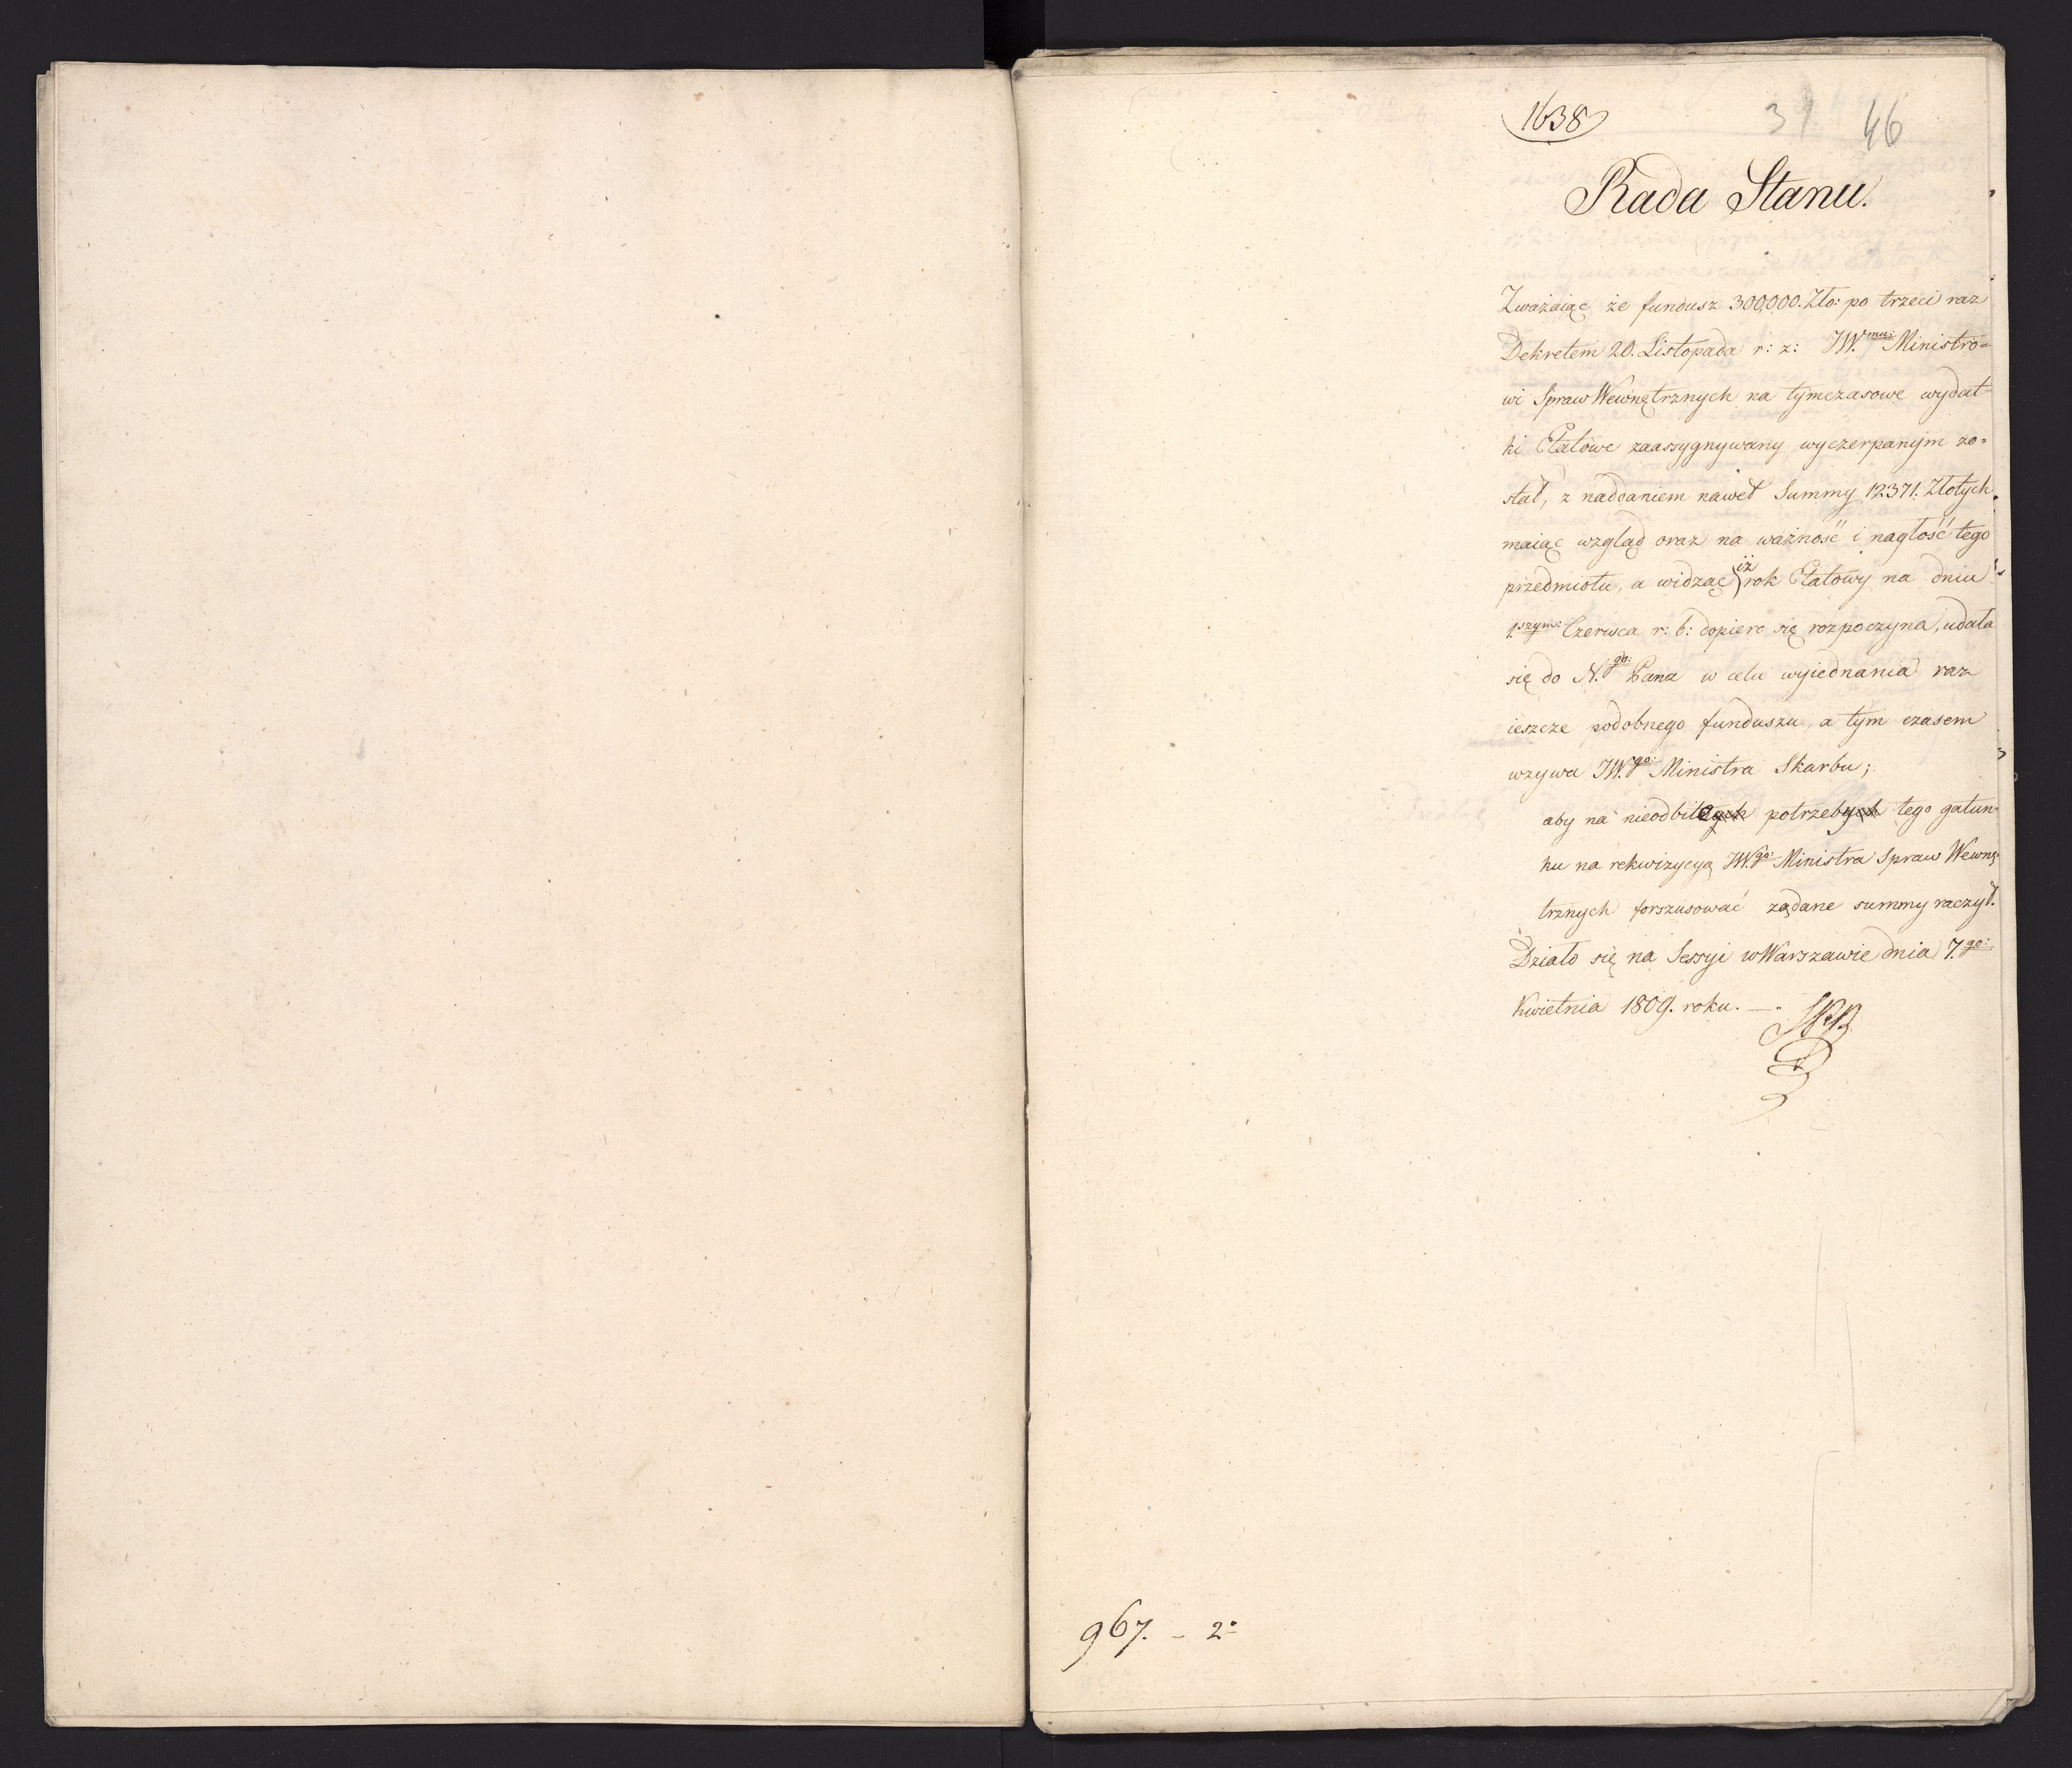 1638
31 46
Rada Stanu.
Zważaiąc że fundusz 300,000. Zło: po trzeci raz
Dekretem 20. Listopada r: z: JW.mu: Ministro=
wi Spraw Wewnętrznych na tymczasowe wydat=
ki Etatowe zaassygnywany wyczerpanym zo=
stał, z naddaniem nawet Summy 12371. Złotych
maiąc wzgląd oraz na ważność i nagłość tego
przedmiotu, a widząc iż rok Etatowy na dniu
1.szym: Czerwca r: b: dopiero się rozpoczyna, udała
się do N.go: Pana w celu wyiednania raz
ieszcze podobnego funduszu, a tym czasem
wzywa JW.go: Ministra Skarbu;
aby na nieodbite potrzeby tego gatun=
ku na rekwizycyą JW.go: Ministra Spraw Wewnę=
trznych forszusować żądane summy raczył.
Działo się na Sessyi w Warszawie dnia 7.go:
Kwietnia 1809. roku. —.
967. - 2°